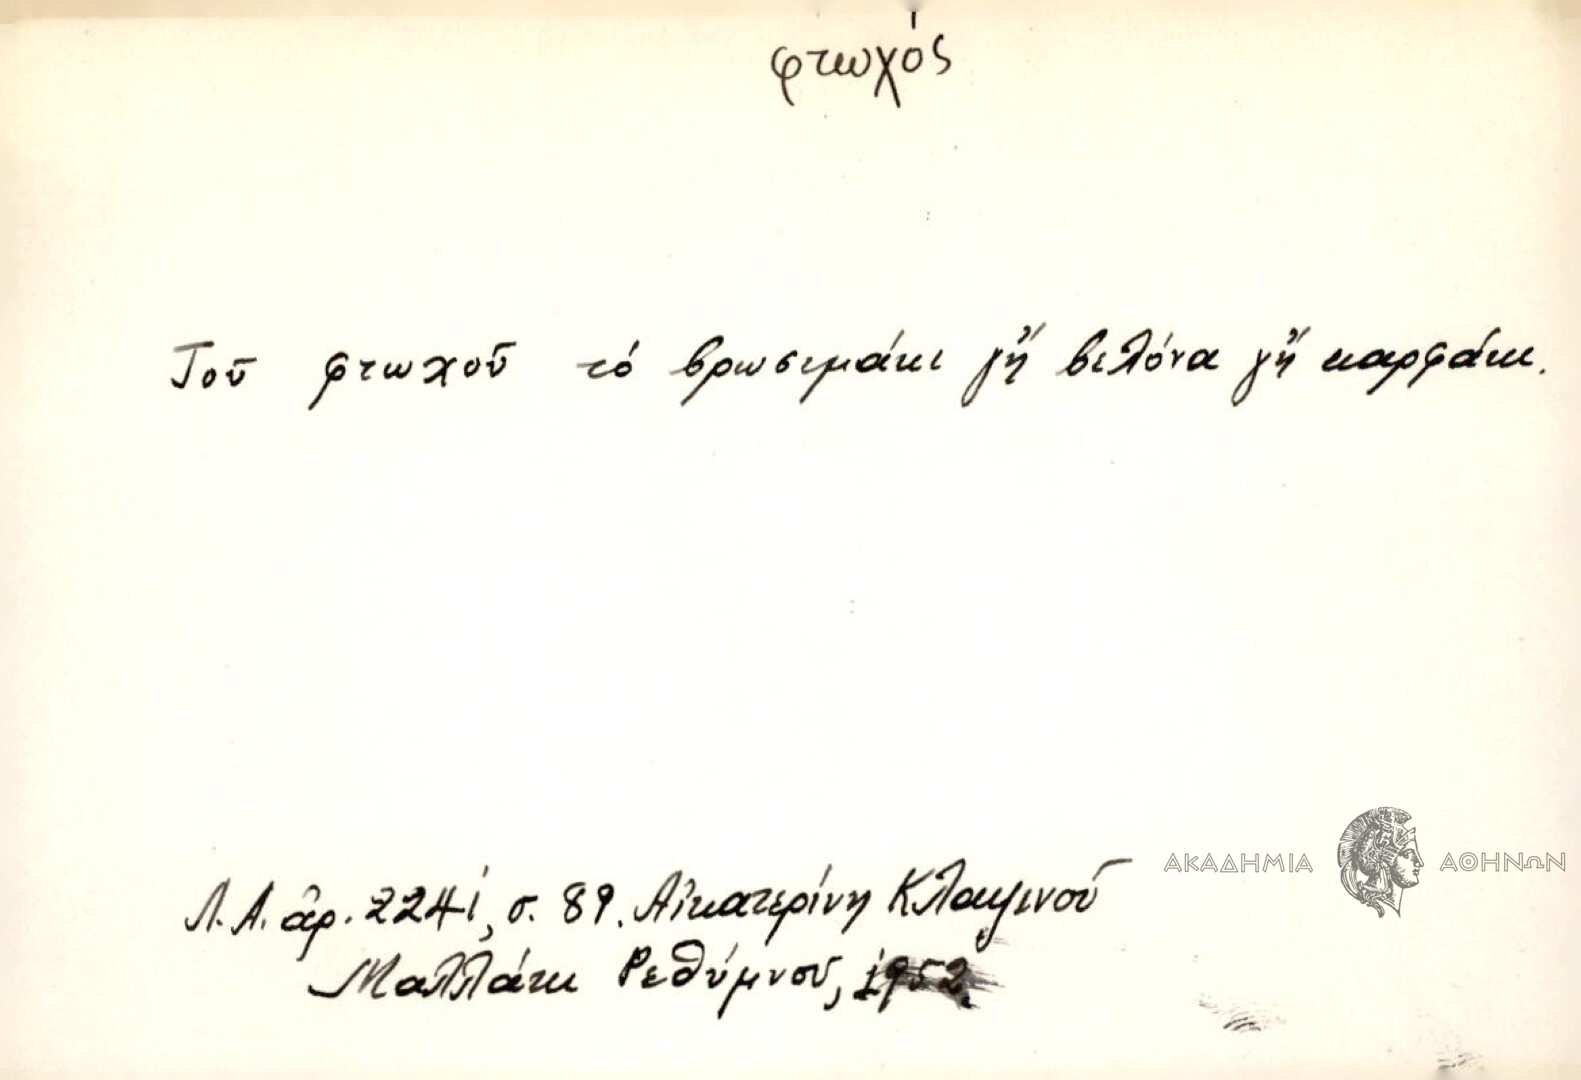 φτωχός
Τοῦ φτωχοῦ τό βρωσιμάκι γἤ βελόνα γἤ καρφάκι.
Λ.Α. ἀρ. 2241, σ. 89. Αἰκατερίνη Κλαψινοῦ
Μαλλάκι Ρεθύμνου, 1952.
ΑΚΑΔΗΜΙΑ ΑΘΗΝΩΝ